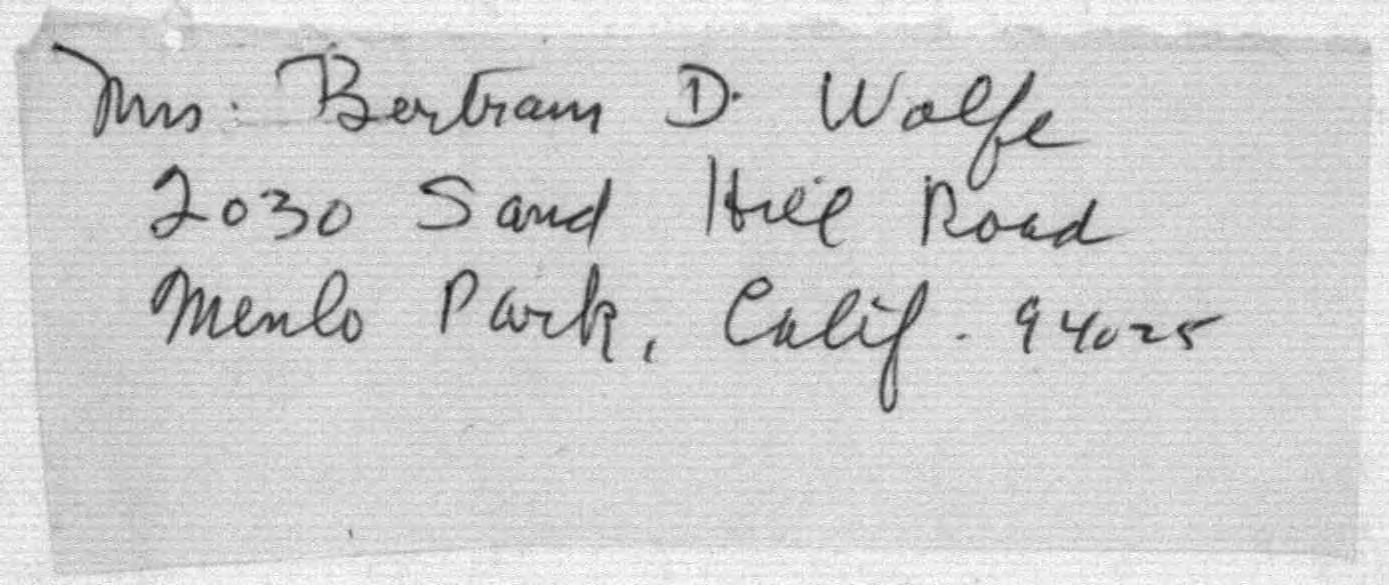 Mrs. Bertram D. Wolfe
2030 Sand Hill Road
Menlo Park, Calif. 94025